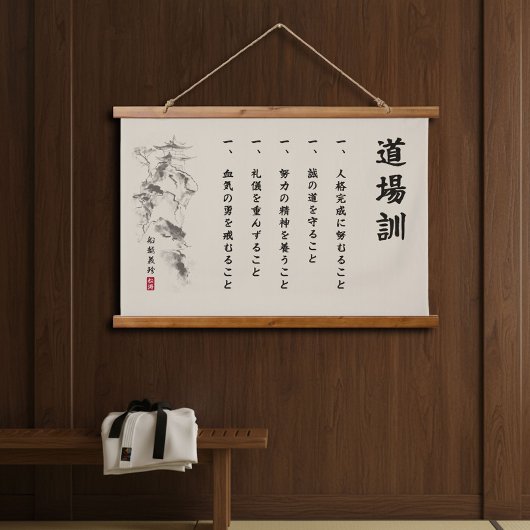 道場訓
一、人格完成に努むること
一、誠の道を守ること
一、努力の精神を養うこと
一、礼儀を重んずること
一、血気の勇を戒むること
船越義珍
松濤